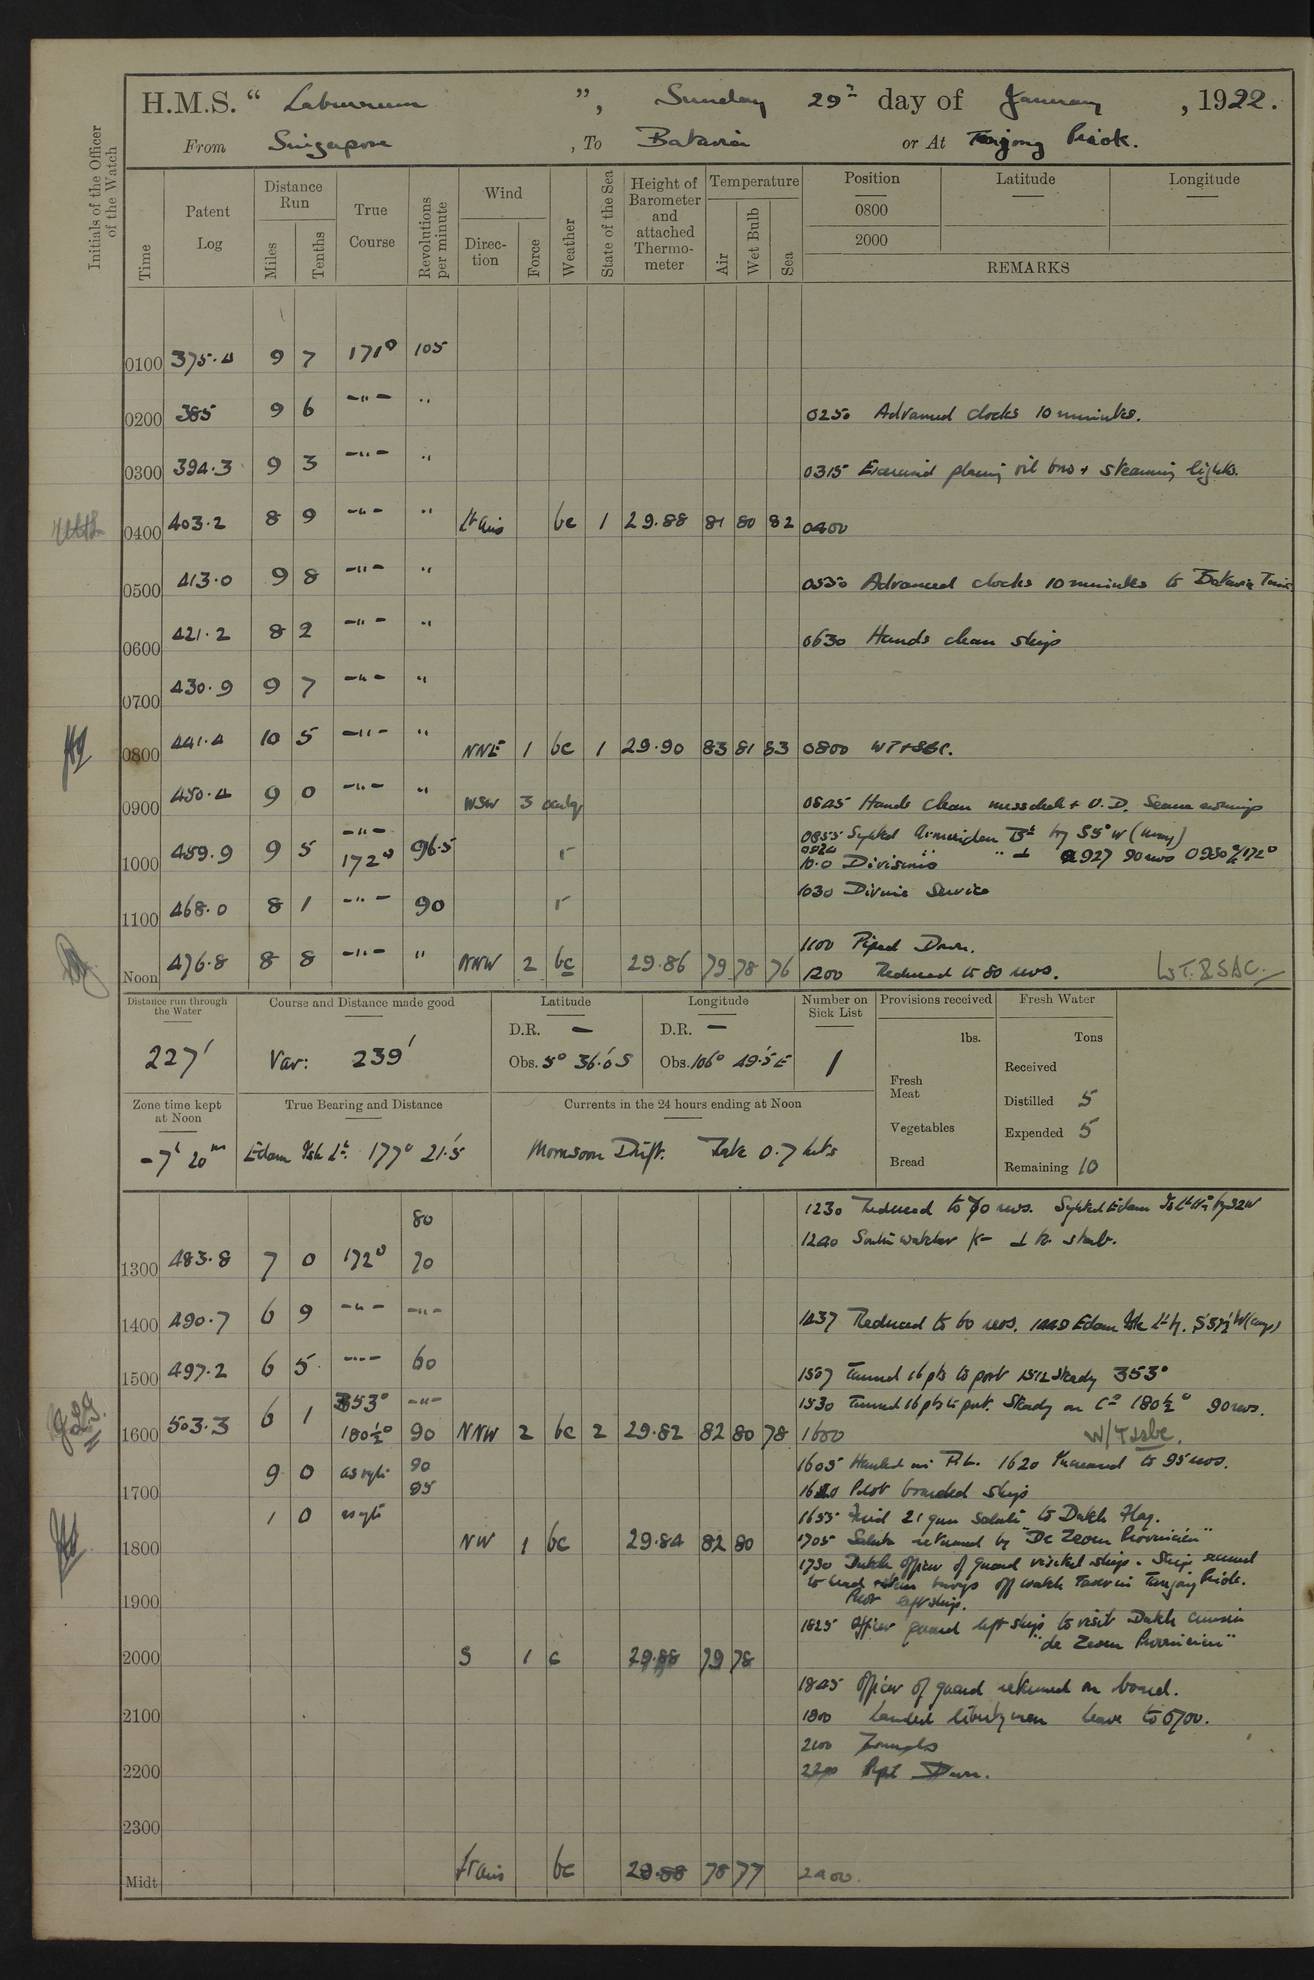 H.M.S. “ Laburnum ”, Sunday 29th day of January , 1922.
From Singapore , To Batavia or At Tanjong Priok.
Initials of the Officer of the Watch
Time
Patent Log
Distance Run
Miles
Tenths
True Course
Revolutions per minute
Wind
Direction
Force
Weather
State of the Sea
Height of Barometer and attached Thermometer
Temperature
Air
Wet Bulb
Sea
Position
Latitude
Longitude
0800
2000
REMARKS
0100 375.4 9 7 171° 105
0200 385 9 6 -"- " 0250 Advanced clocks 10 minutes.
0300 394.3 9 3 -"- " 0315 Exercised placing oil bow & steaming lights.
0400 403.2 8 9 -"- " Lt airs bc 1 29.88 81 80 82 0400
0500 413.0 9 8 -"- " 0530 Advanced clocks 10 minutes to Batavia Time
0600 421.2 8 2 -"- " 0630 Hands clean ship
0700 430.9 9 7 -"- "
0800 441.4 10 5 -"- " NNE 1 bc 1 29.90 83 81 83 0800 WT+SBC.
0900 450.4 9 0 -"- " WSW 3 0845 Hands clean messdeck & U.D. Secure awnings
1000 459.9 9 5 -"- 172° 96.5 r 0855 Sighted by S5°W (mag)
10.0 Divisions " ⊥ 0927 90 revs 0950 a/c 172°
1100 468.0 8 1 -"- 90 r 1030 Divine Service
1100 Piped Down.
Noon 476.8 8 8 -"- " NNW 2 bc 29.86 79 78 76 1200 Reduced to 80 revs. W.T. & SAC.
Distance run through the Water
227'
Course and Distance made good
Var: 239'
Latitude
D.R. —
Obs. 5° 36'.0 S
Longitude
D.R. —
Obs. 106° 49'.5 E
Number on Sick List
1
Provisions received
lbs.
Fresh Meat
Vegetables
Bread
Fresh Water
Tons
Received
Distilled 5
Expended 5
Remaining 10
Zone time kept at Noon
-7h 20m
True Bearing and Distance
Edam Isle Lt. 177° 21'.5
Currents in the 24 hours ending at Noon
Monsoon Drift. Rate 0.7 kts
80 1230 Reduced to 70 revs. Sighted Edam
1300 483.8 7 0 172° 70 1240
1400 490.7 6 9 -"- -"- 1437 Reduced to 60 revs. 1448 Edam Isle Lt
1500 497.2 6 5 -"- 60 1507 Turned 16 pts to port 1512 Steady 353°
353° -"- 1530 Turned 16 pts to port. Steady on Co 180½° 90 revs.
1600 503.3 6 1 180½° 90 NNW 2 bc 2 29.82 82 80 78 1600 W/T & sbc.
1700 9 0 as reqte 90 95 1605 Hauled in P.L. 1620 Increased to 95 revs.
1640 Pilot boarded ship
1800 1 0 as reqte NW 1 bc 29.84 82 80 1655 Fired 21 gun salute to Dutch Flag.
1705 Salute returned by "De Zeven Provincien"
1730 Dutch officer of guard visited ship. Ship secured
1900 to head & stern buoys off watch Tower in Tanjong Priok.
Pilot left ship.
1825 Officer guard left ship to visit Dutch cruiser
"de Zeven Provincien"
2000 S 1 c 29.88 79 78
1845 Officer of guard returned on board.
2100 1900 Landed liberty men leave to 0700.
2100 Rounds
2200 2200 Pipe Down.
2300
Midt Lt airs bc 29.88 78 77 2400.